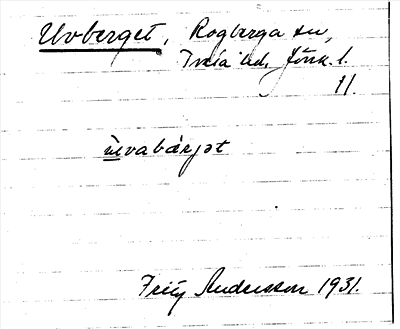 Uvberget, Rogberga sn,
Tveta hd, Jönk. l.
11.
ùvabærjət
Fritz Andersson 1931.